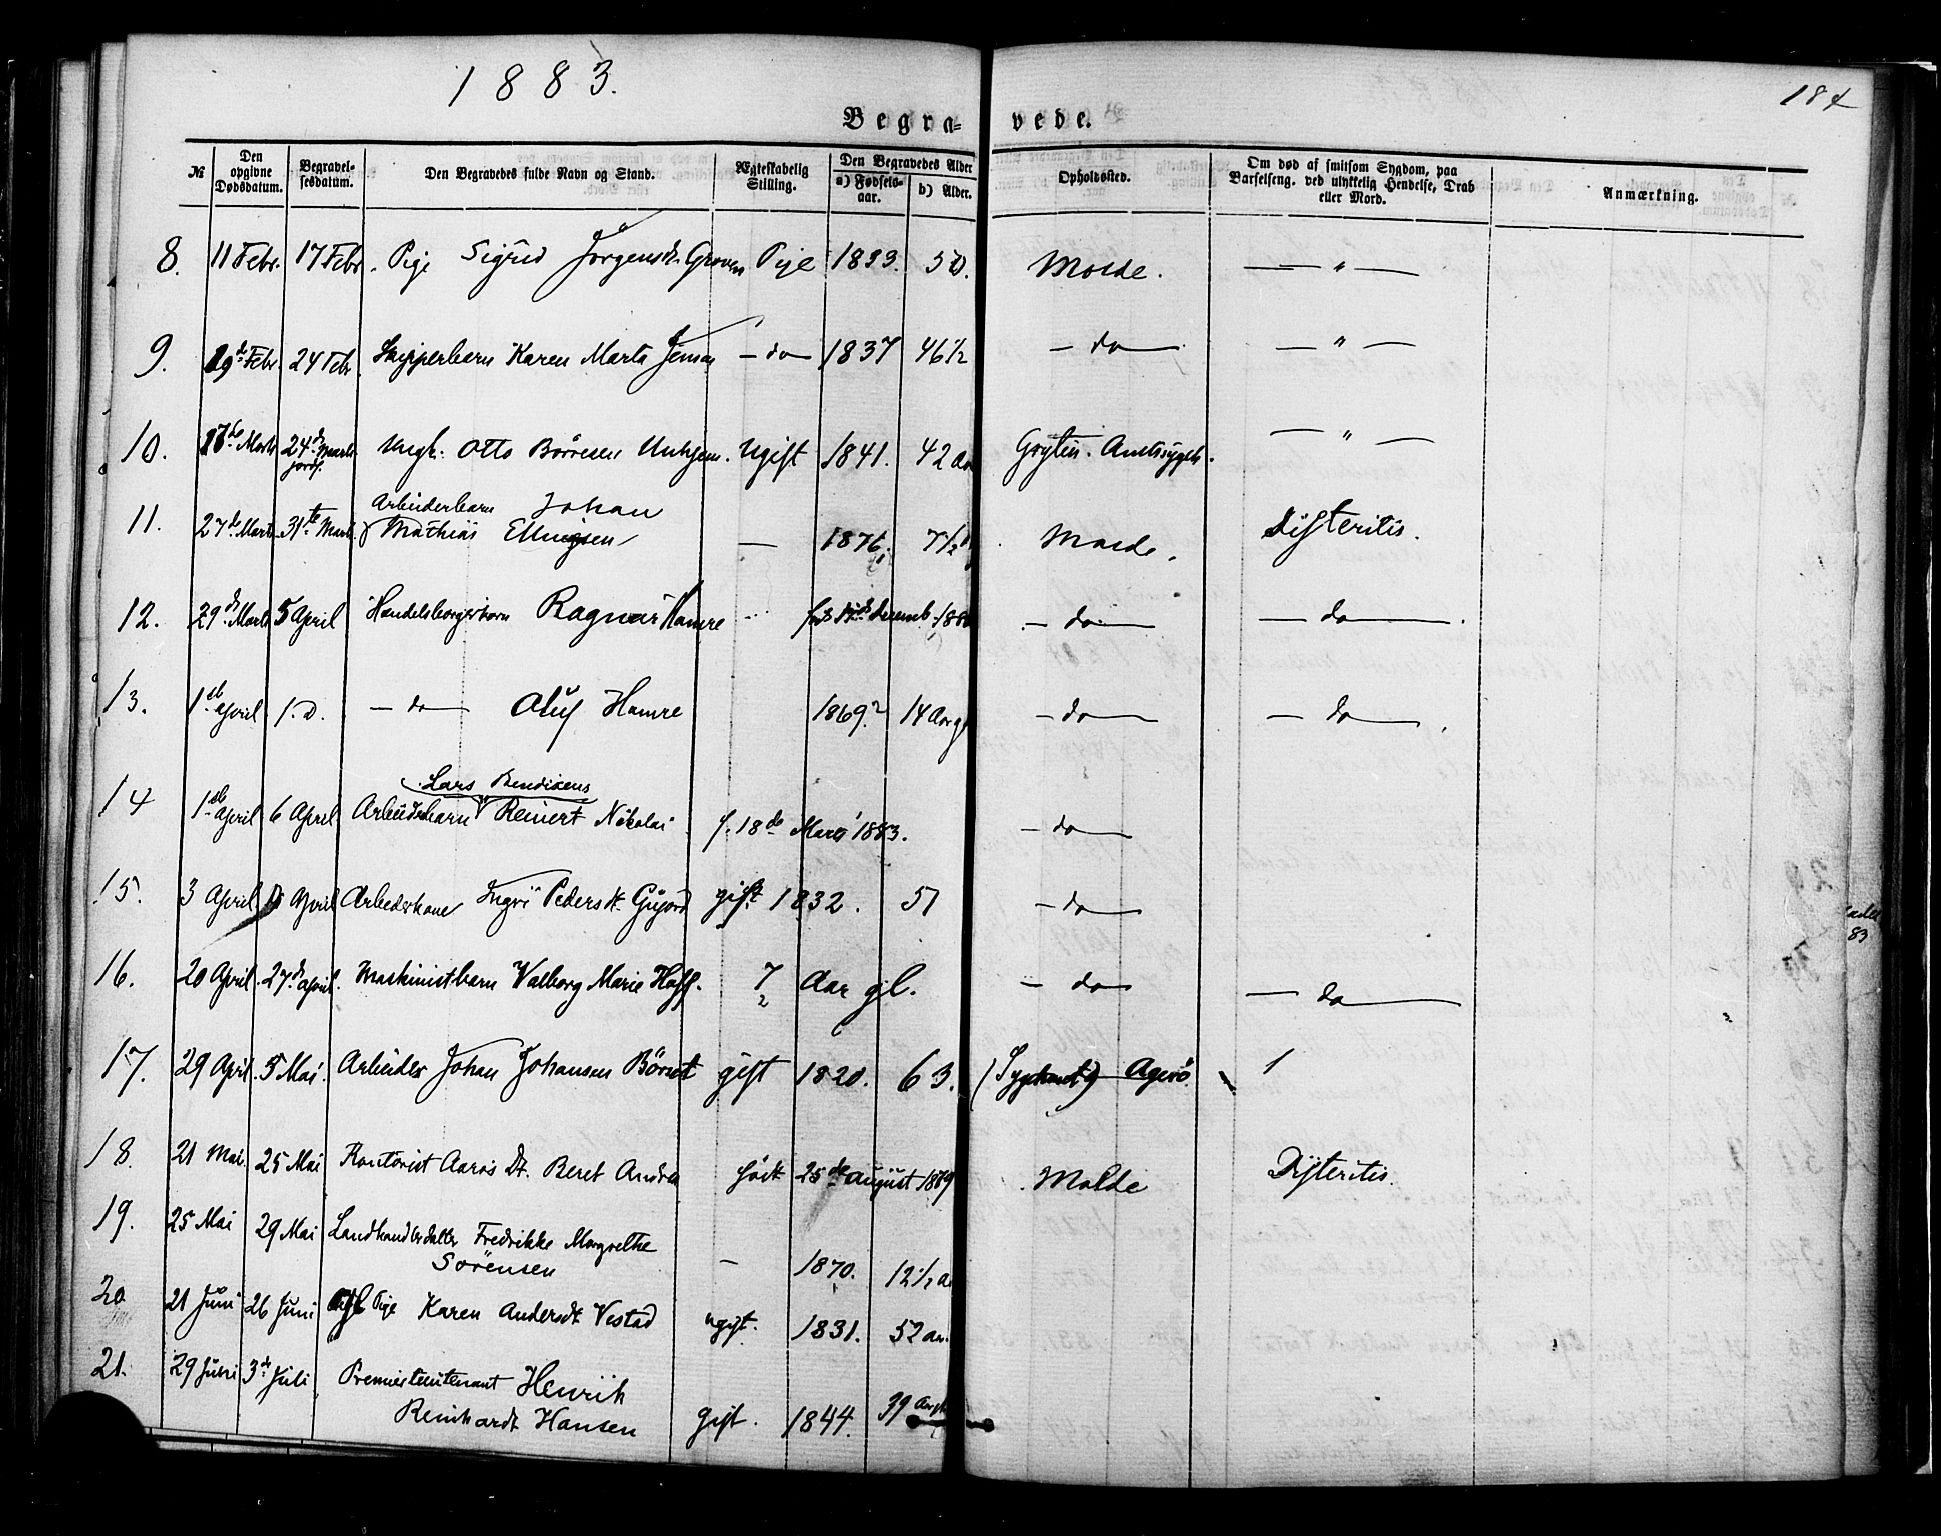 1883.
184
Begra- vede.
№
Den opgivne Dødsdatum.
Begravelsesdatum.
Den Begravedes fulde Navn og Stand.
Ægteskabelig Stilling.
Den Begravedes Alder
a) Fødselsaar.
b) Alder.
Opholdssted.
Om død af smitsom Sygdom, paa Barselseng, ved ulykkelig Hendelse, Drab eller Mord.
Anmærkning.
8. 11 Febr. 17 Febr. Pige Sigrid Jørgensdt. Groven Pige 1833. 50. Molde. — " —
9. 19de Febr. 24 Febr. Skipperbarn Karen Marta Jensen — do — 1837 46 1/2 — do — — " —
10. 17de Marts 24de Marts jordf. Ungk. Otto Børresen Unhjem. Ugift 1841. 42 Aar Grytten. Amtssygeh. — " —
11. 27de Marts 31te Marts Arbeiderbarn Johan
Mathias Ellingsen — 1876. 7 1/2 Molde. Difteritis.
12. 29de Marts 5 April Handelsborgerbarn Ragnar Hamre — decemb. — do — — do —
13. 1ste April 1. D. — do — Oluf Hamre 1869? 14 Aar gl — do — — do —
Lars Bendixens
14 1ste April 6 April Arbeiderbarn Reinert Nikolai f. 18de Marts 1883. — do —
15. 3 April April Arbederkone Ingri Pedersdt. gift 1832. 51 — do —
16. 20 April 27de April. Maskinistbarn Valborg Marie Hoff. 7 Aar gl. — do — — do —
17. 29 April 5 Mai. Arbeider Johan Johansen gift 1820. 63. Agerö
18. 21 Mai 25 Mai Kontorist Aarøs Dt. Beret Andrea født 25de August 18 9 Molde Difteritis.
19. 25 Mai 29 Mai Landhandlerdatter Fredrikke Margrethe
Sörensen — 1870. 12 1/2 a
20 21 Juni 26 Juni Pige Karen Andersdt. Vestad ugift. 1831. 52 aar.
21. 29 Juni 3de Juli Premierleutenant Henrik
Reinhardt Hansen gift. 1844. 39 Aar gl
83